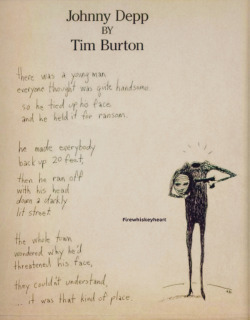 Johnny Depp
BY
Tim Burton
There was a young man
everyone thought was quite handsome
so he tied up his face
and he held it for ransom.
he made everybody
back up 20 feet,
then he ran off
with his head
down a darkly
lit street
the whole town
wondered why he'd
threatened his face,
they couldn't understand,
it was that kind of place.
firewhiskeyheart